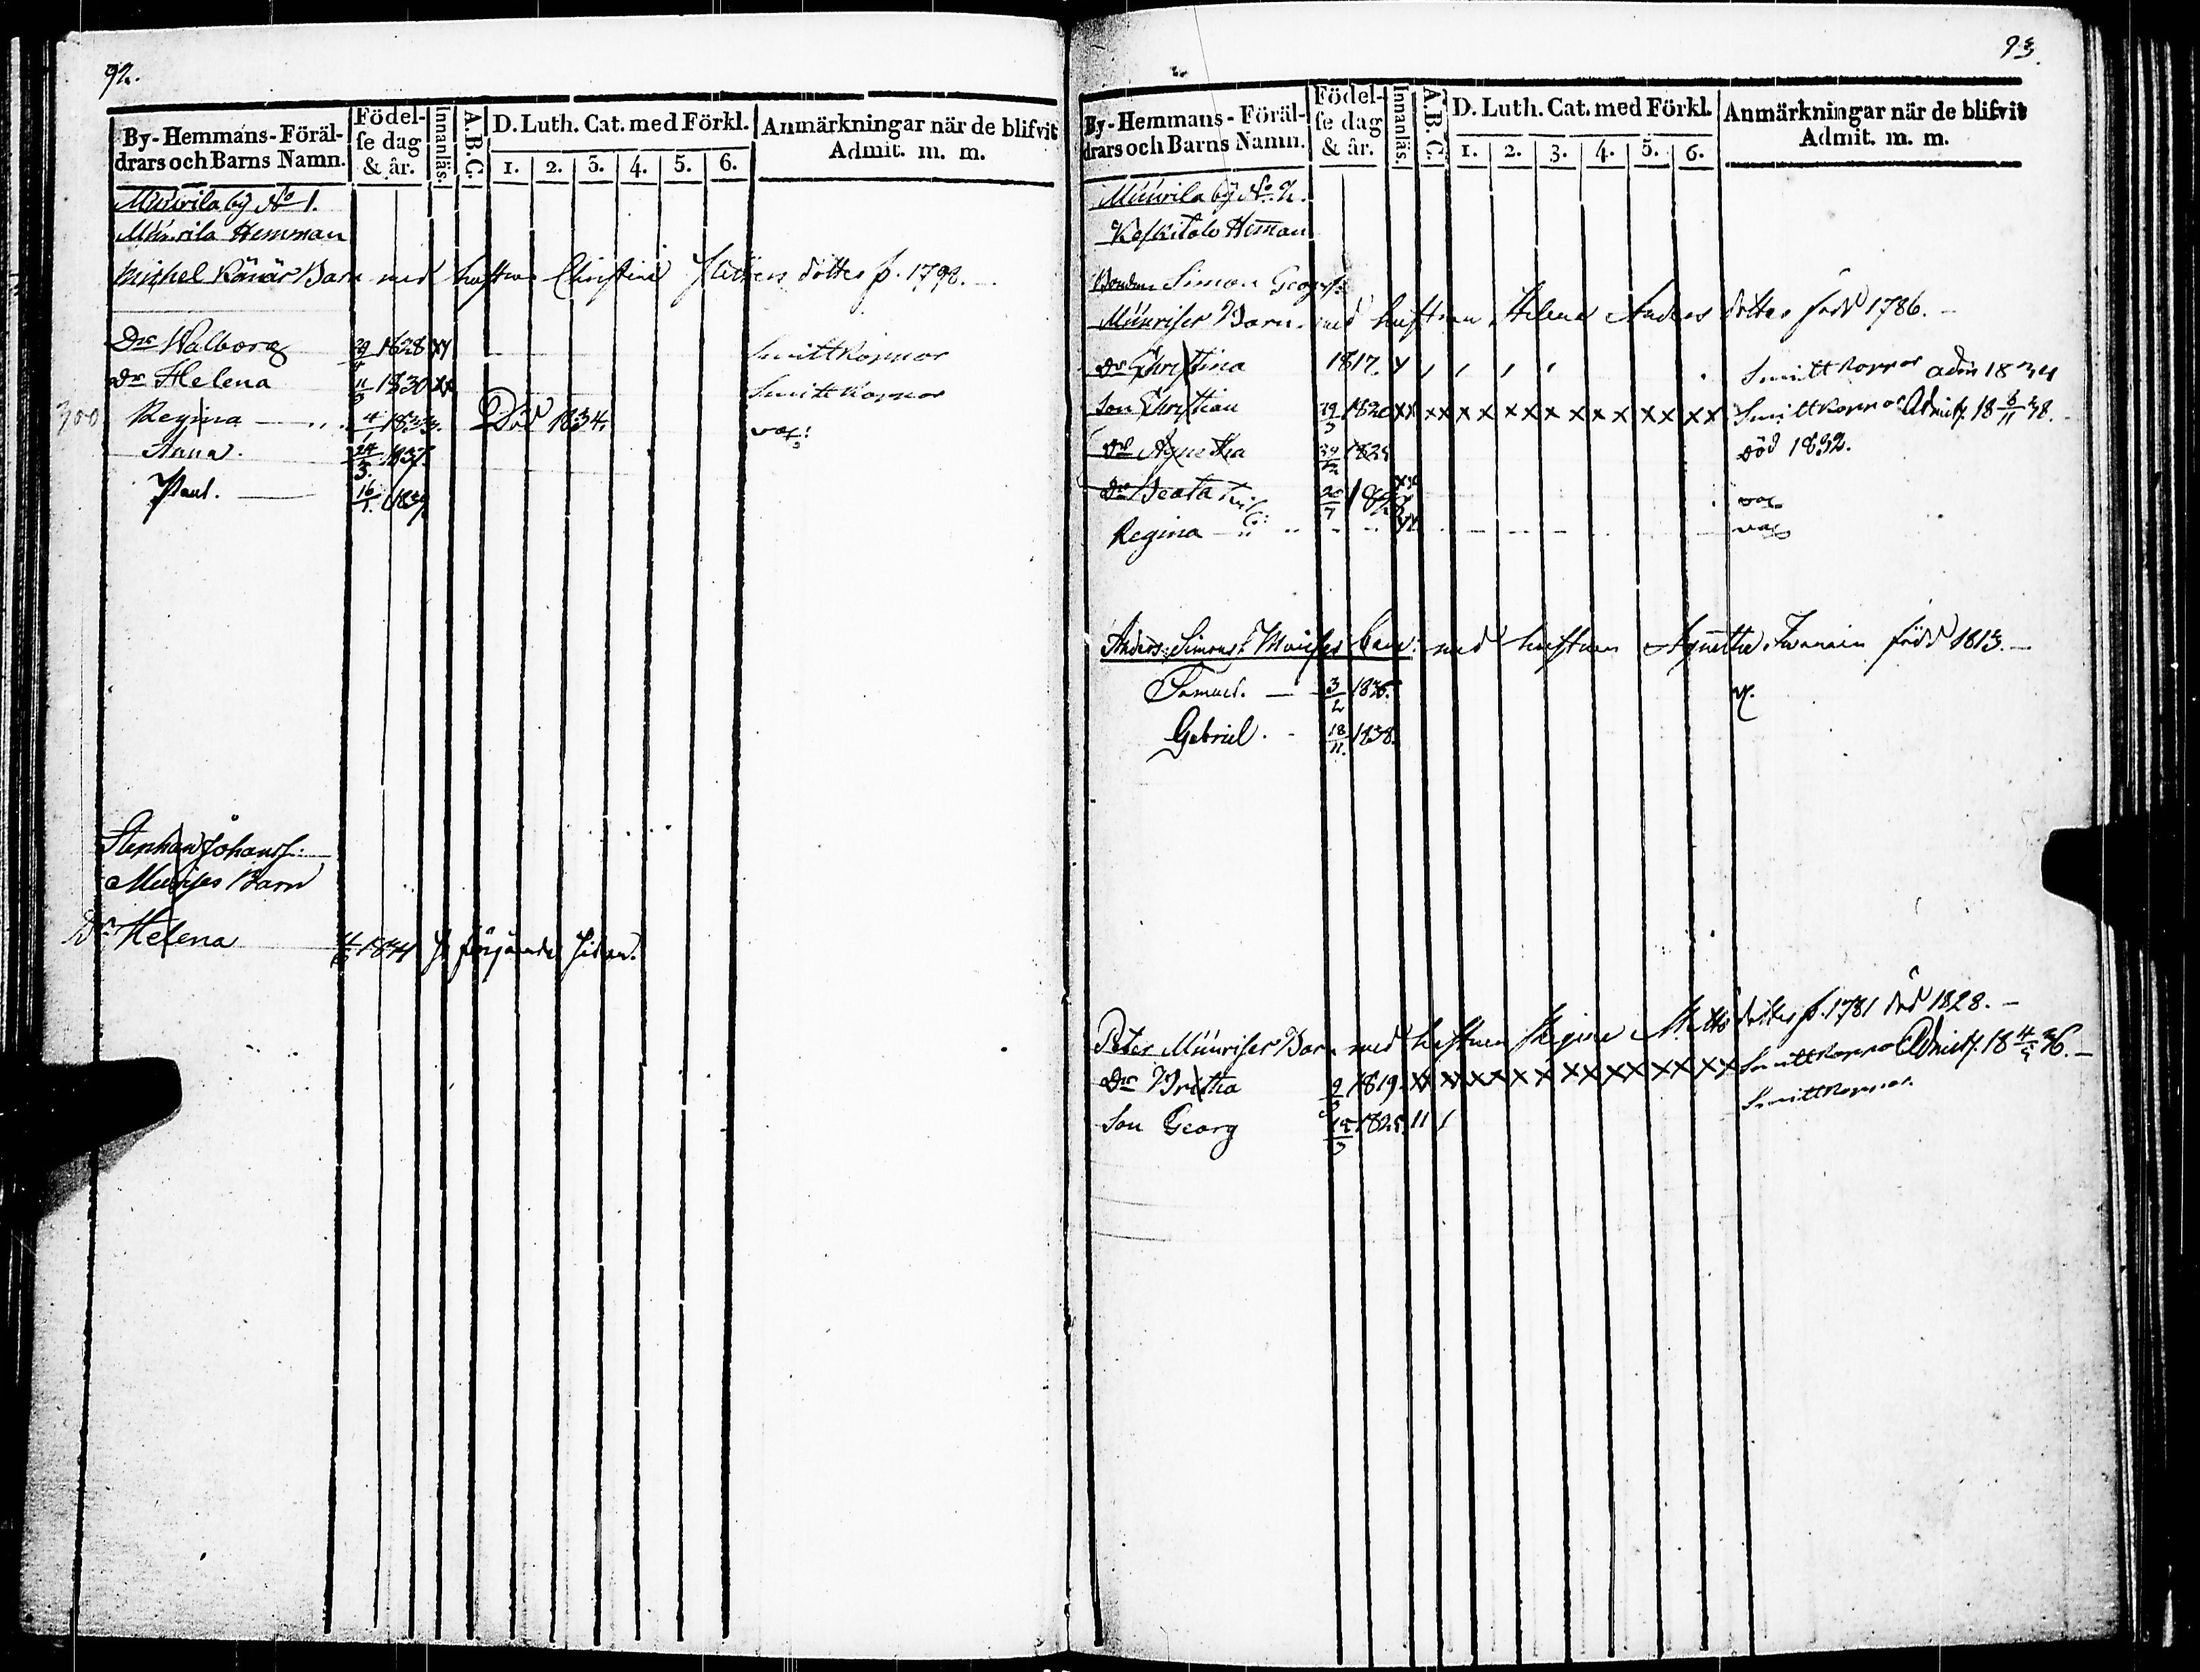 92.
By-Hemmans-Föräl-
drars och Barns Namn.
Födel-
se dag
& år.
Innanläs.
A.B.C.
D. Luth. Cat. med Förkl.
1. 2. 3. 4. 5. 6.
Anmärkningar när de blifvit
Admit. m. m.
Muurila by No 1.
Muurila Hemman
Michel Barn med hustrun Christina dotter f. 1798.
Dr Walborg 1828 xx Smittkoppor
Dr Helena 11 1830 xx Smittkoppor
300 Regina 4/1 1833. Död 1834. vac:
Anna. 24/3. 1837.
Paul. 16
Stephan Johanss.
Muurises Barn
Dr Helena följande sidan.
93.
By-Hemmans-Föräl-
drars och Barns Namn.
Födel-
se dag
& år.
Innanläs.
A.B.C.
D. Luth. Cat. med Förkl.
1. 2. 3. 4. 5. 6.
Anmärkningar när de blifvit
Admit. m. m.
Muurila by No 2.
Keskitalo Heman
Bonden Simon Georgs:
Muuriser Barn med hustrun Helena Anders dotter född 1786.
Dr Christina 1817. Smittkoppor adm 1834
Son Christian 1820 xx xx x x x x x x x x x x x Smittkoppor Admitt. 18 8/11 38.
Dr Agnetha 1825 död 1832.
Dr Beata vac.
Regina vac
Anders Simons. Barn: med hustrun Agnetha född 1813.
Samuel. 3/2 1836. v.
Gabriel. 18/11. 1838.
Peter Muuriser Barn med hustrun Regina Matts dotter f. 1781 död 1828.
Dr Britha 1819. xx x x x x x x x x x x x x x Smittkoppor Admitt. 18 4/5 36.
Son Georg 1825. 11 1 Smittkoppor